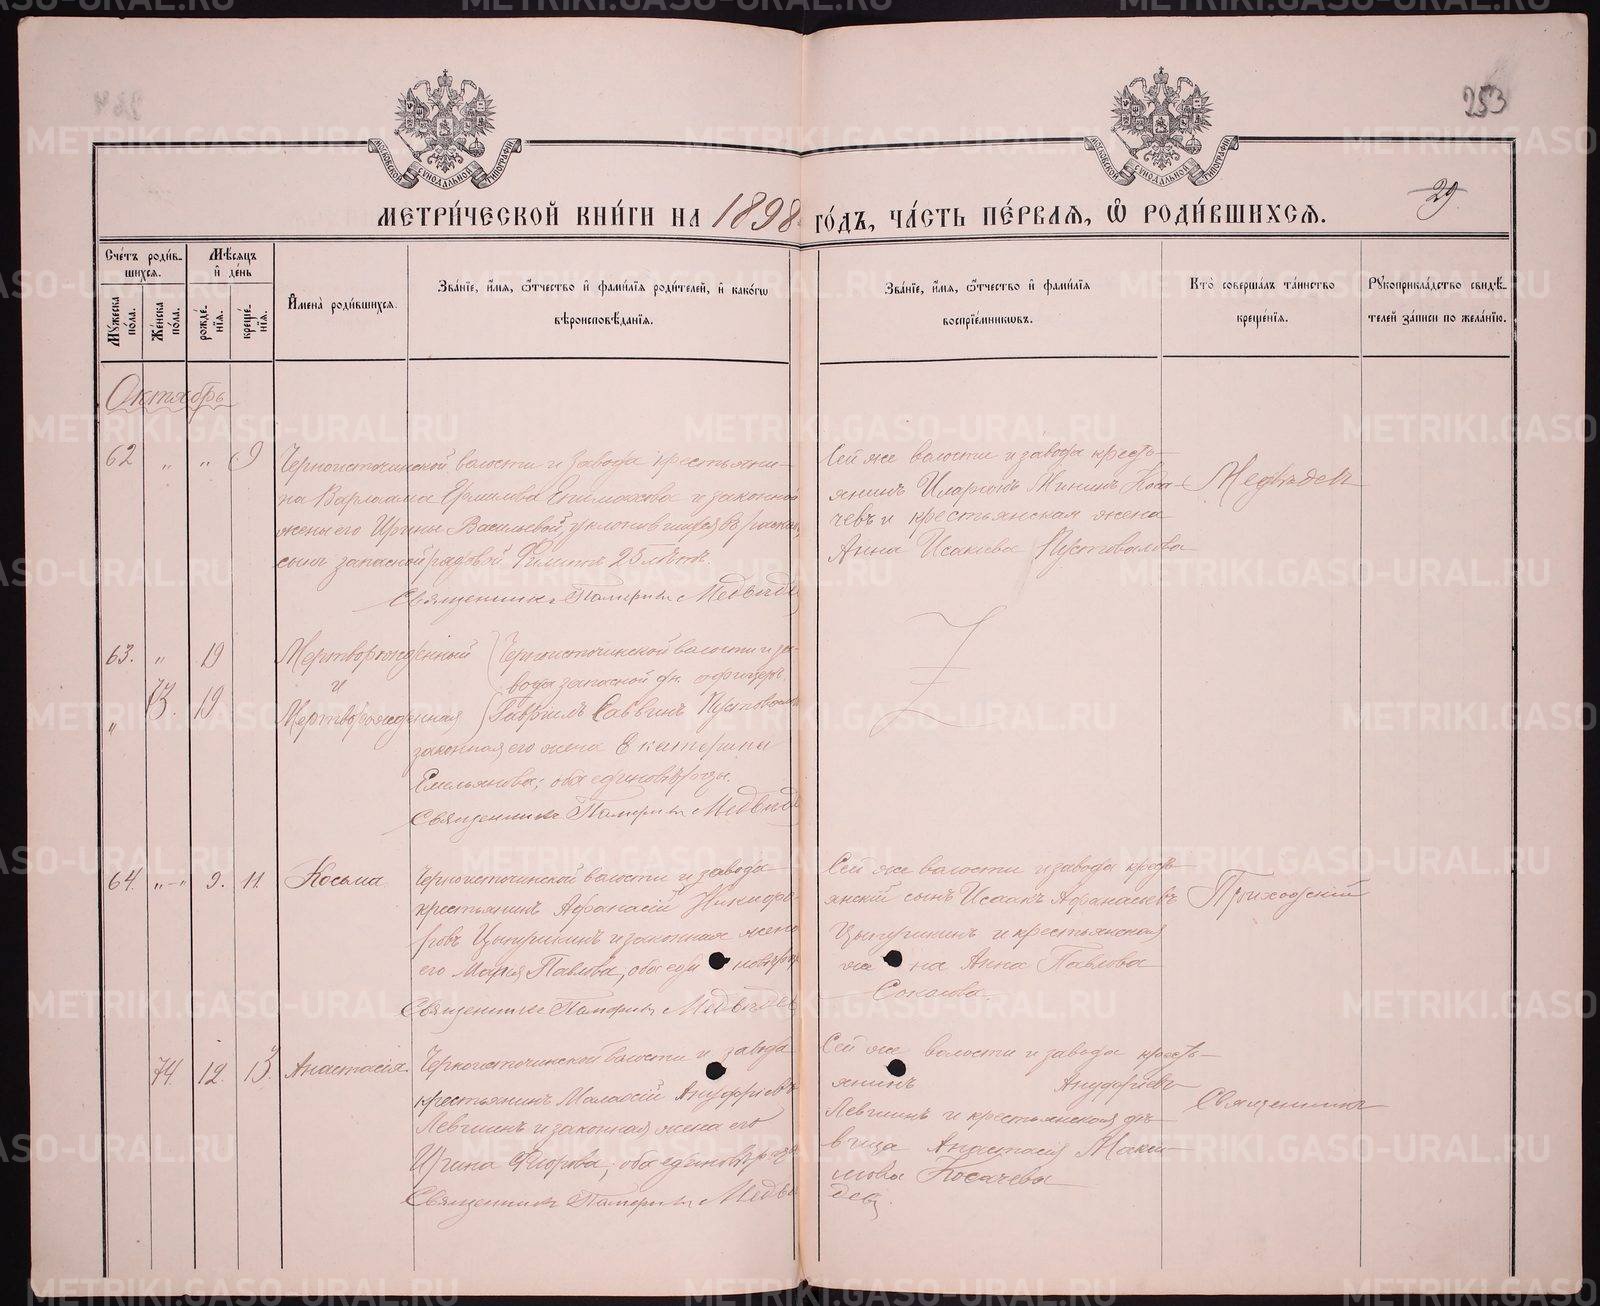 253
29
МЕТРИ́ЧЕСКОЙ КНИ́ГИ НА 1898 ГО́ДЪ, ЧА́СТЬ ПЕ́РВАЯ, Ѡ҆ РОДИ́ВШИХСЯ.
МОСКОВСКОЙ СѴНОДАЛЬНОЙ ТИПОГРАФІИ
МОСКОВСКОЙ СѴНОДАЛЬНОЙ ТИПОГРАФІИ
Сче́тъ роди́вшихся.
Мѣ́сяцъ и҆ де́нь
Мꙋ́жеска по́ла.
Же́нска по́ла.
рожде́нїя.
креще́нїя.
И҆мена̀ роди́вшихся.
Зва́нїе, и҆́мя, ѻ҆́тчество и҆ фами́лїя роди́телей, и҆ како́гѡ
вѣроисповѣ́данїя.
Зва́нїе, и҆́мя, ѻ҆́тчество и҆ фами́лїя
воспрїе́мникѡвъ.
Кто̀ соверша́лъ та́инство
креще́нїя.
Рꙋкоприкла́дство свидѣ́телей за́писи по жела́нїю.
Октябрь
62 " " 9
Черноисточинской волости и завода крестьяни-
на Варлаама Ермилова Епимахова и законной
жены его Ирины Васильевой, уклонившихся въ раскол,
сынъ запасной рядовой Филиппъ 25 лѣтъ.
Священникъ Памфилъ Медвѣд
Сей же волости и завода кресть-
янинъ Иларіонъ Мининъ Коса-
чевъ и крестьянская жена
Анна Исакова Пустовалова
Медвѣдев
63. " 19 Мертворожденный
и
" 73. 19 Мертворожденная
Черноисточинской волости и за-
вода запасной ун. офицеръ
Гавріилъ Саввинъ Пустовалов
законная его жена Екатерина
Емельянова; оба единовѣрцы.
Священникъ Памфилъ Медвѣд
64. " - " 9. 11. Косьма
Черноисточинской волости и завода
крестьянинъ Афанасій Никифо-
ровъ Цыпушкинъ и законная жена
его Марія Павлова, оба единовѣрц
Священникъ Памфилъ Медвѣдев
Сей же волости и завода кресть-
янскій сынъ Исаакъ Афанасьевъ
Цыпушкинъ и крестьянская
жена Анна Павлова
Соколова.
Приходскій
74. 12. 13. Анастасія
Черноисточинской волости и завода
крестьянинъ Малахій Ануфріевъ
Левшинъ и законная жена его
Ирина Фпорова; оба единовѣрцы
Священникъ Памфилъ Медвѣ
Сей же волости и завода кресть-
янинъ Ануфріевъ
Левшинъ и крестьянская дѣ-
вица Анастасія Макси-
мова Косачева
Священникъ
METRIKI.GASO-URAL.RU